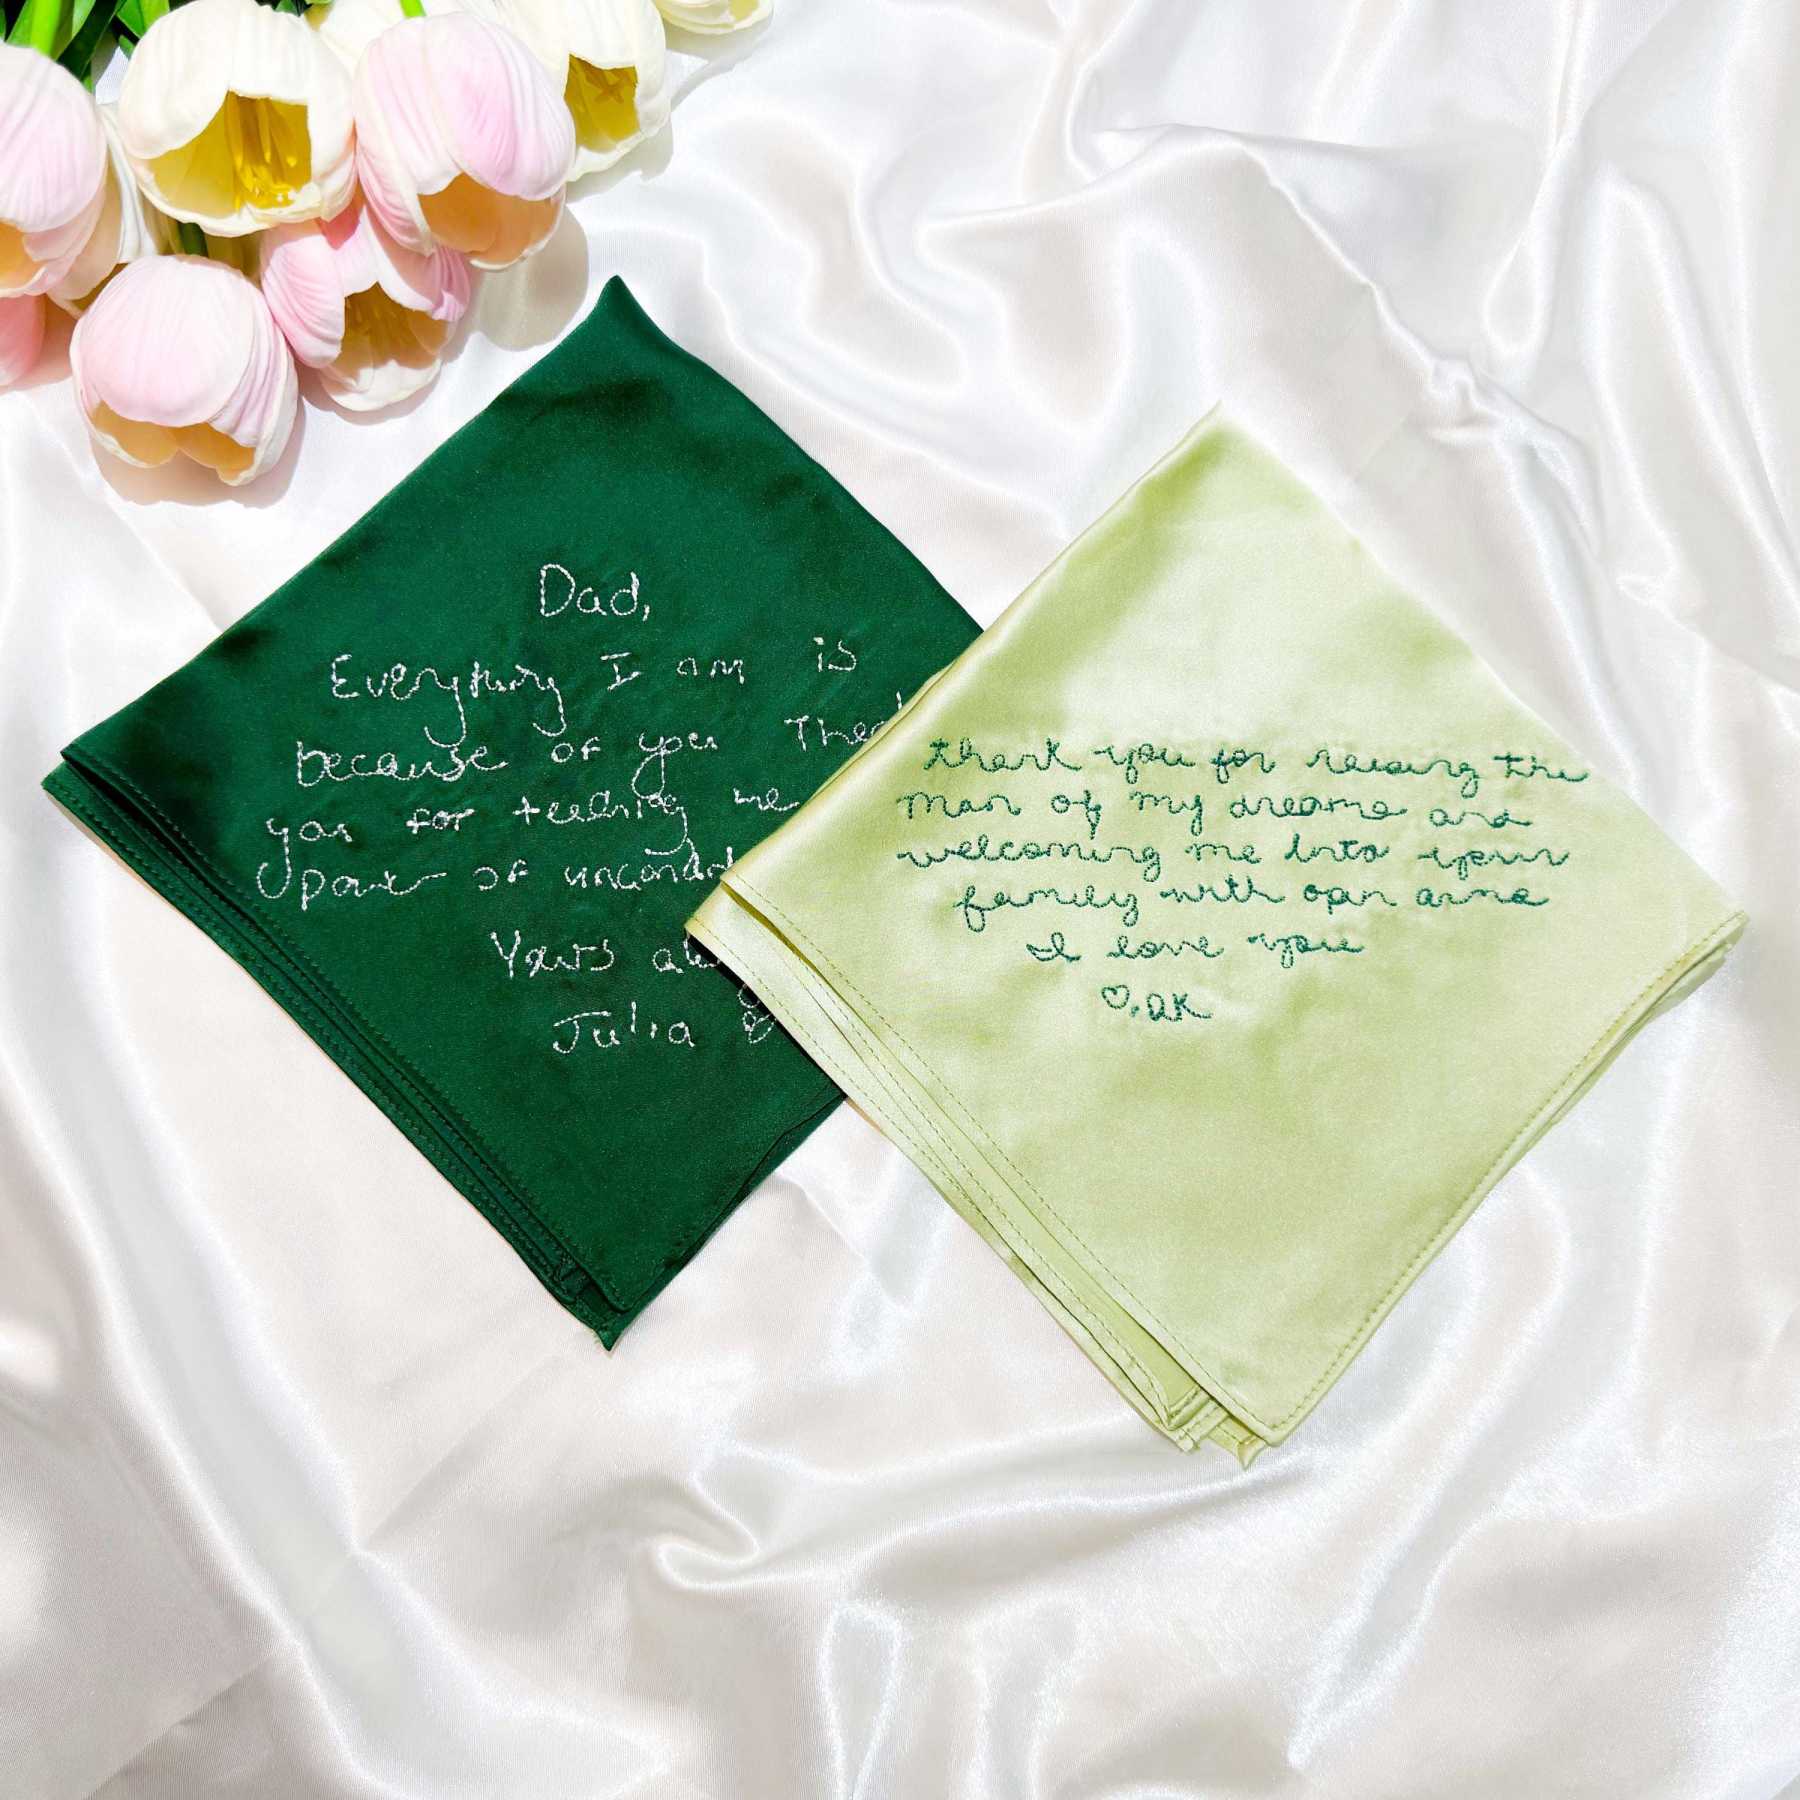 Dad,
Everything I am is
because of you Than
you for teaching me
part of uncondi
Yours al
Julia ♡
thank you for raising the
man of my dreams and
welcoming me into your
family with open arms
I love you
♡, DK